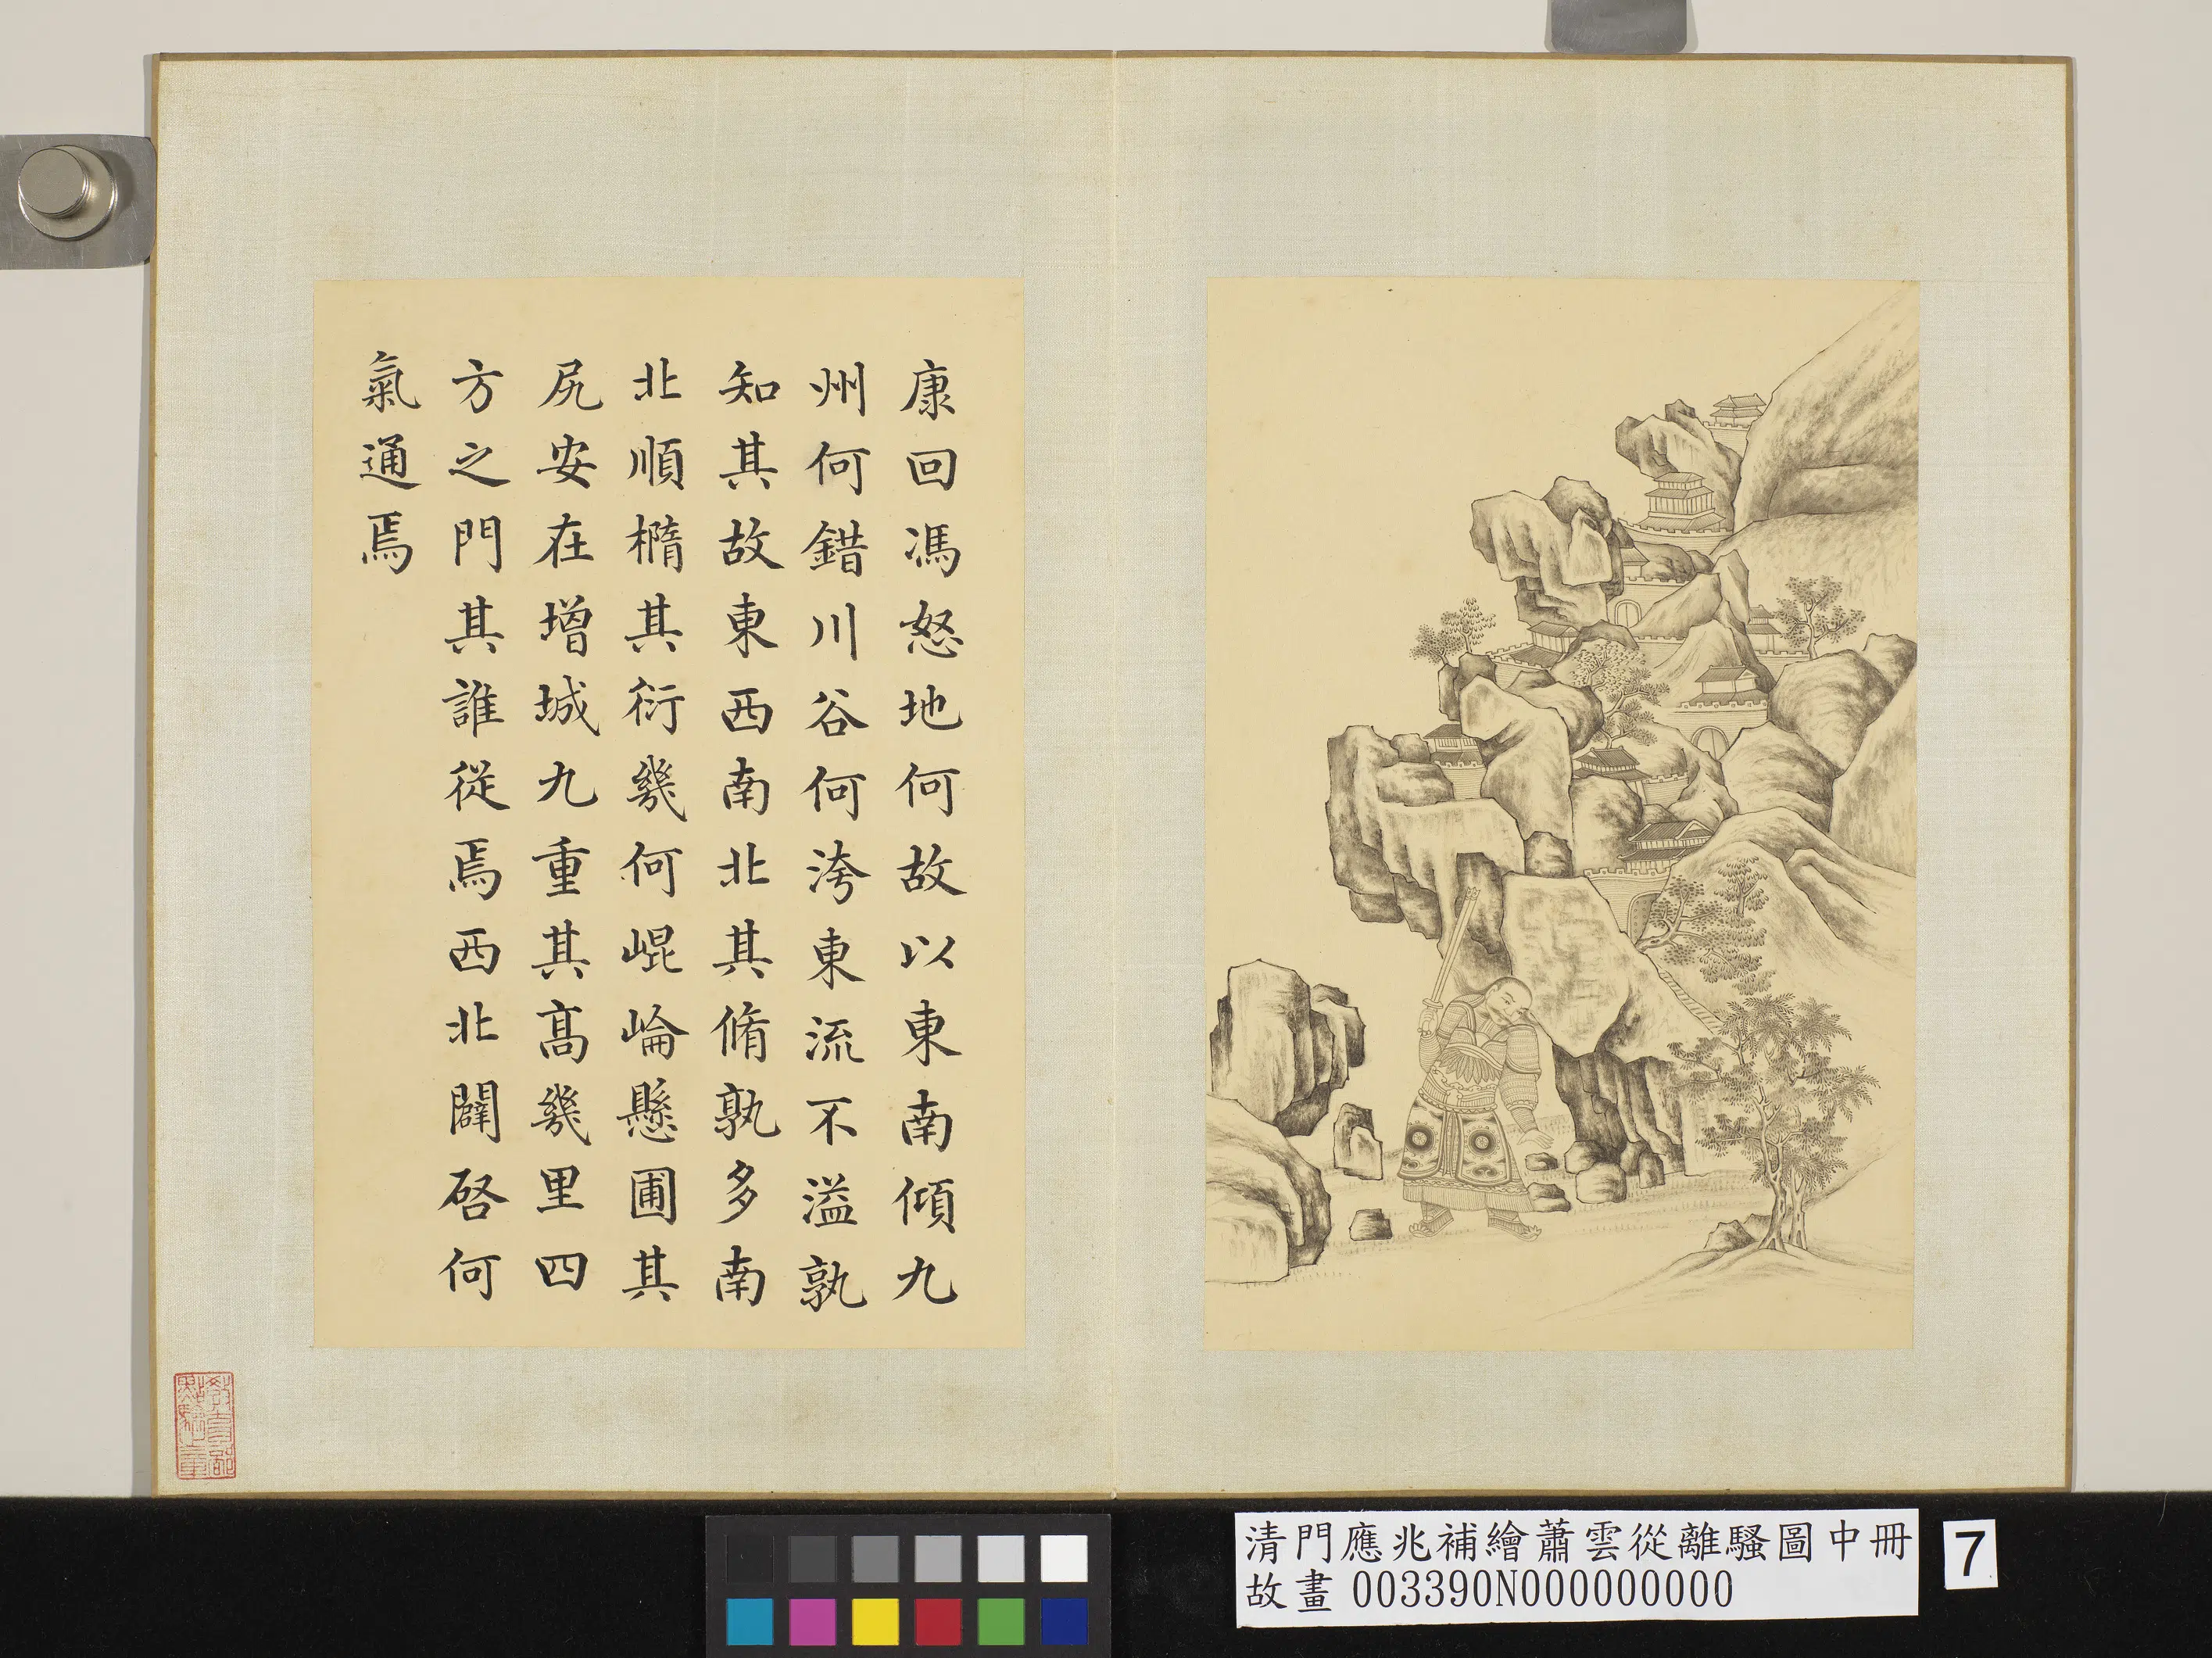 康回馮怒地何故以東南傾九
州何錯川谷何洿東流不溢孰
知其故東西南北其脩孰多南
北順橢其衍幾何崐崙懸圃其
尻安在增城九重其高幾里四
方之門其誰從焉西北闢啓何
氣通焉
教育部
點驗之章
清門應兆補繪蕭雲從離騷圖中冊
故畫 003390N000000000
7